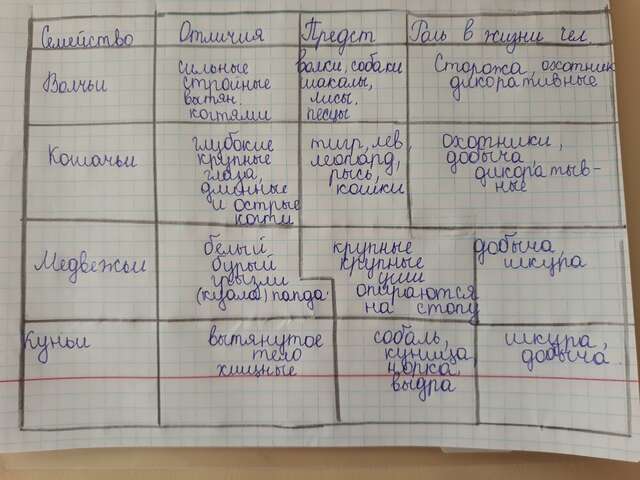 Семейство Отличия Предст Роль в жизни чел.
Волчьи
сильные
стройные
вытян.
когтями
волки, собаки
шакалы,
лисы.
песцы
Сторожа, охотник
дикоративные
Кошачьи
глубокие
крупные
глаза,
длинные
и острые
когти
тигр, лев,
леопард,
рысь,
кошки
охотники,
добыча,
дикоратыв-
ные
Медвежьи
белый
бурый
грызли
(куала) панда.
крупные
крупные
уши
опираются
на стопу
добыча,
шкура
Куньи
вытянутое
тело
хищные
собаль,
куница
норка,
выдра
шкура,
добыча.